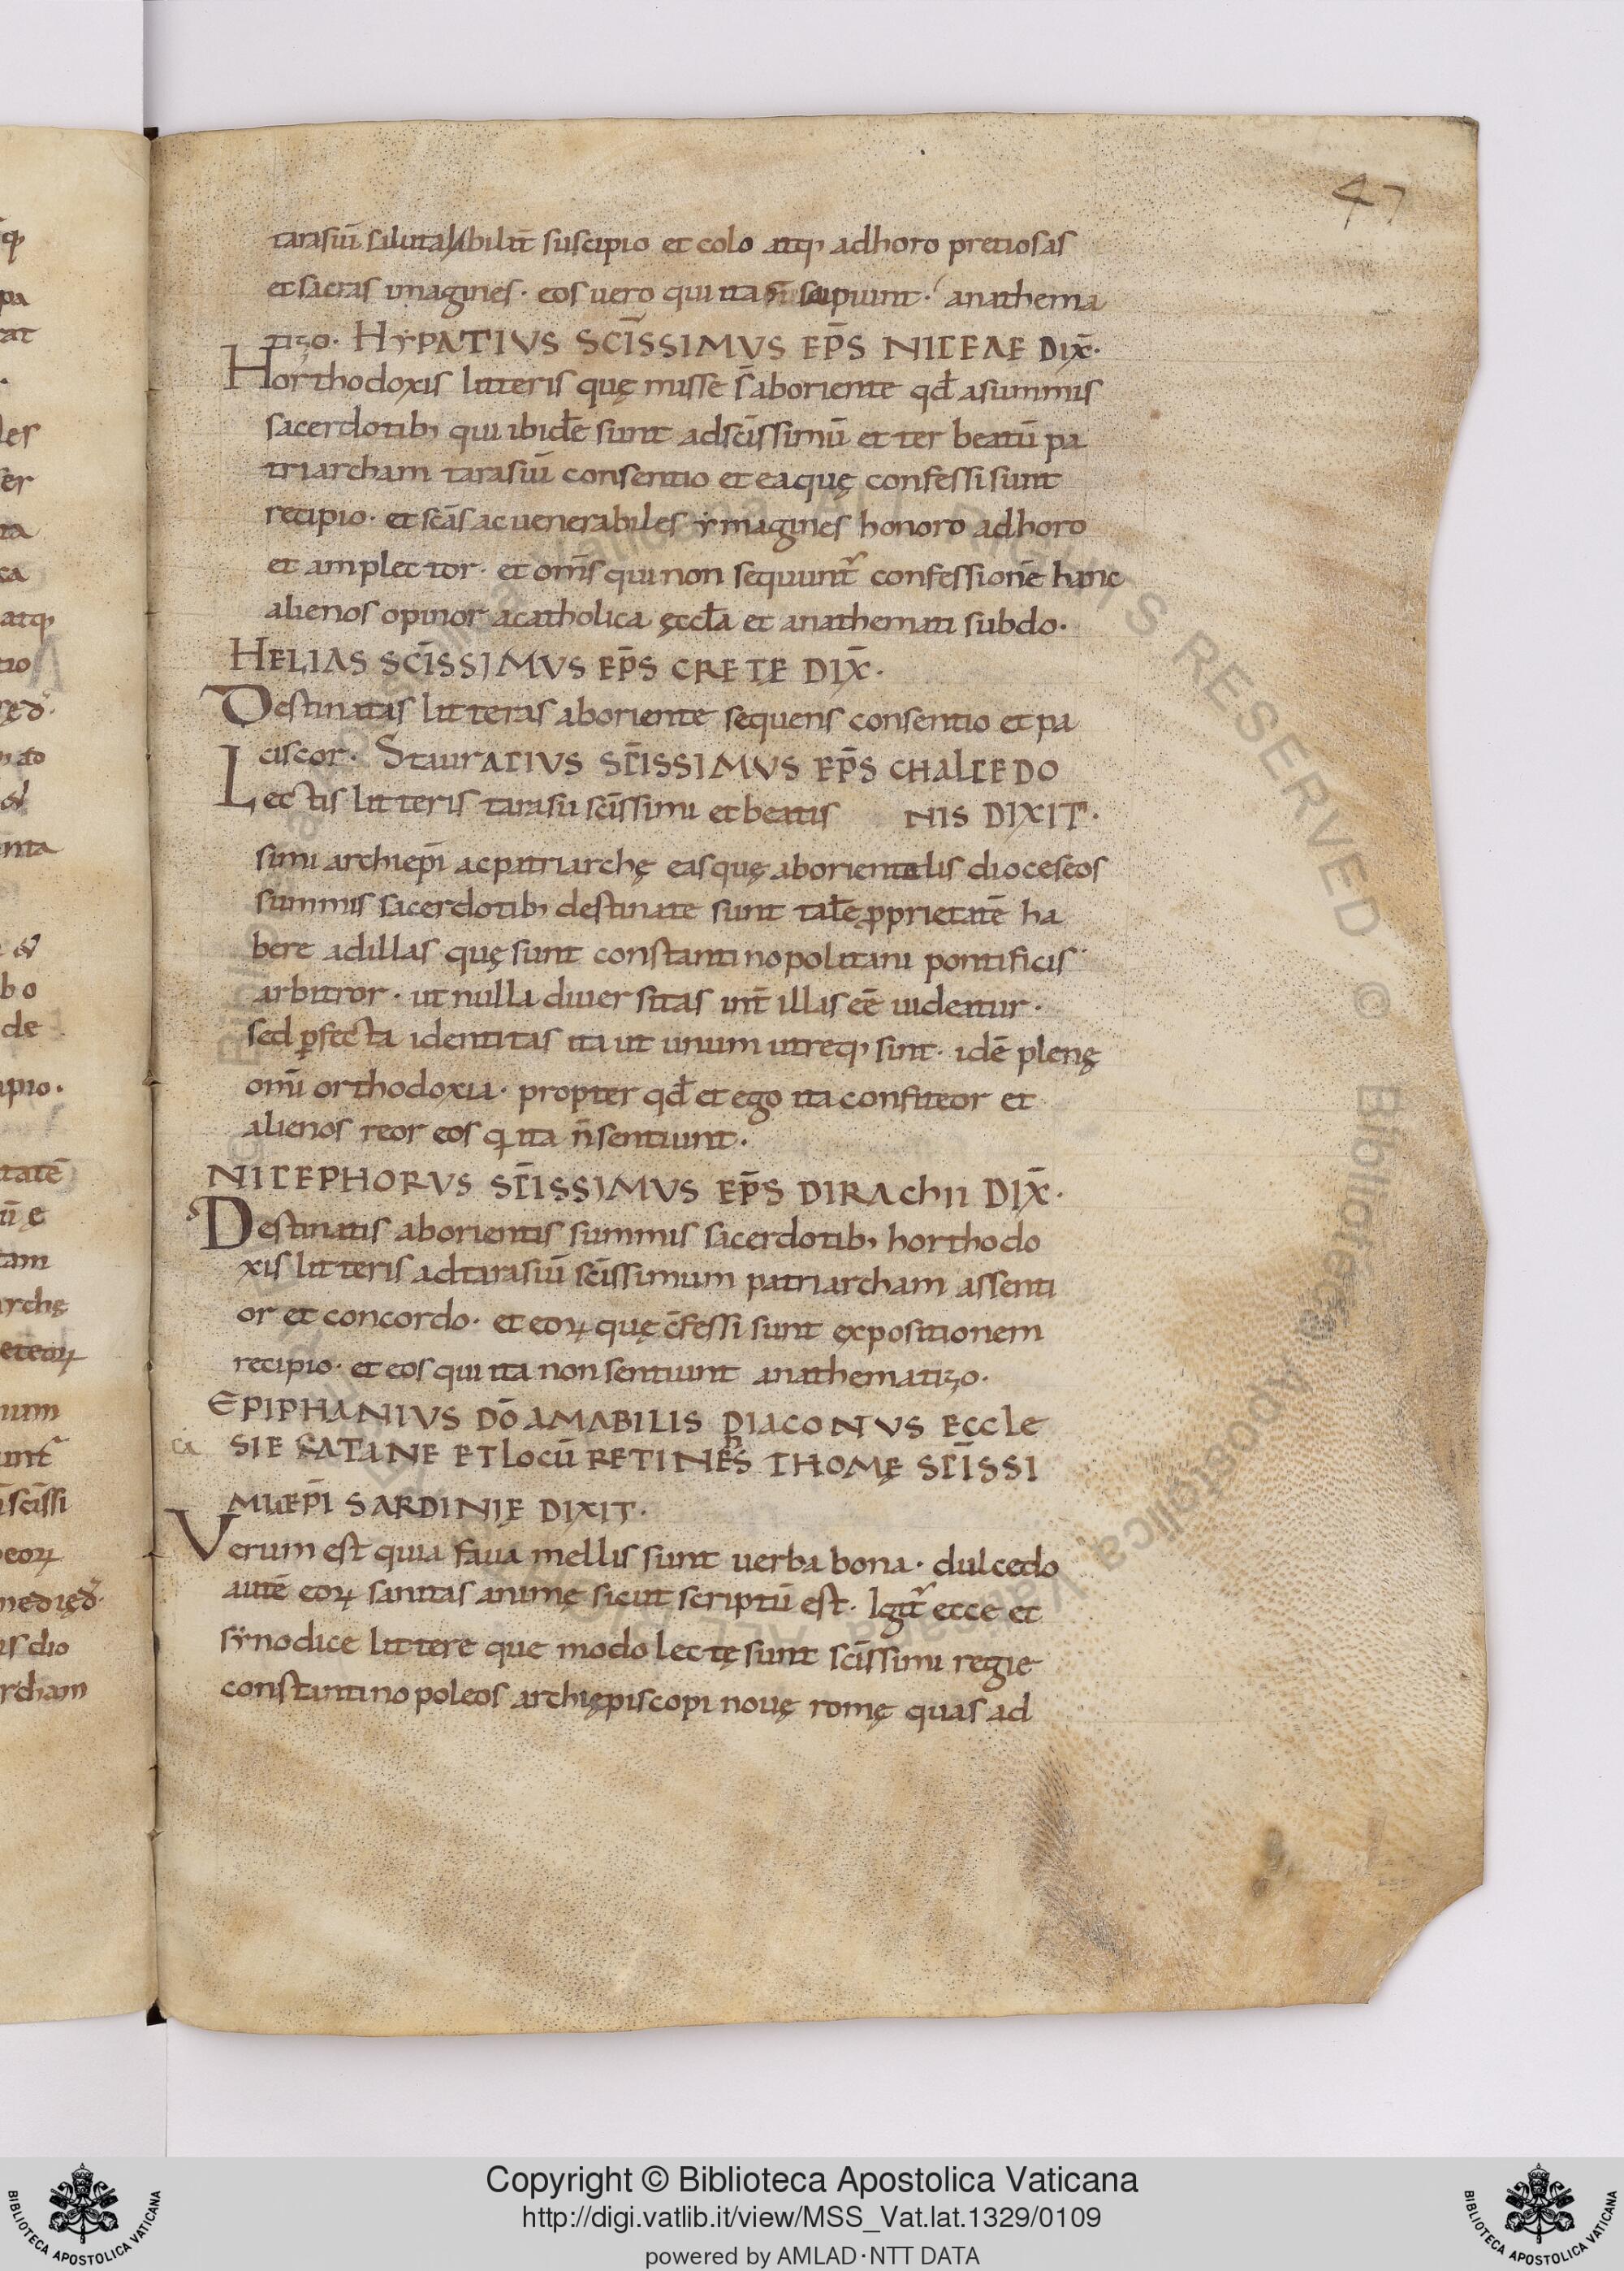 47
tarasiū salutabilit̄ suscipio et colo atq; adhoro pretiosas
et sacras imagines· eos uero qui ita piunt· anathema
tizo· HYPATIVS SCĪSSIMVS EP̄S NICEAE DIX̄·
Horthodoxis litteris quę misse s̄ aboriente qd̄ asummis
sacerdotib; qui ibidē sunt adscīssimū et ter beatū pa
triarcham tarasiū consentio et ea quę confessi sunt
recipio· et scās ac uenerabiles ymagines honoro adhoro
et amplector· et om̄s qui non sequunt̄ confessionē hanc
alienos opinor acatholica ęccƚa et anathemati subdo·
HELIAS SCĪSSIMVS EP̄S CRETE DIX̄·
Destinatas litteras aboriente sequens consentio et pa
ciscor· StaurACIVS SCĪSSIMVS EP̄S CHALCEDO
Lectis litteris tarasii scīssimi et beatis NIS DIXIT·
simi archiep̄i ac patriarchę easquę aborientalis dioceseos
summis sacerdotib; destinate sunt talē ꝓprietatē ha
bere adillas quę sunt constantinopolitani pontificis
arbitror· ut nulla diuersitas int̄ illas eē uideatur·
sed ꝑfecta identitas ita ut unum utreq; sint· idē plenę
omī orthodoxia· propter qd̄ et ego ita confiteor et
alienos reor eos q ita n̄ sentiunt·
NICEPHORVS SCĪSSIMVS EP̄S DIRAchii DIX̄·
s
Destinatis aborientis summis sacerdotib; horthodo
xis litteris adtarasiū scīssimum patriarcham assenti
or et concordo· et eoꝝ quę c̄fessi sunt expositionem
recipio· et eos qui ita non sentiunt anathematizo·
EPIPHANIVS DŌ AMABILIS DIACONVS ECCLE
ca SIE CATANE ET locū RETINEN̄S THOMĘ SCĪSSI
MI EP̄I SARDINIĘ DIXIT·
Verum est quia faua mellis sunt uerba bona· dulcedo
autē eoꝝ sanitas animę sicut scriptū est· Igit̄ ecce et
synodice littere que modo lectę sunt scīssimi regie
constantinopoleos archiępiscopi nouę romę quas ad
Copyright © Biblioteca Apostolica Vaticana
http://digi.vatlib.it/view/MSS_Vat.lat.1329/0109
powered by AMLAD·NTT DATA